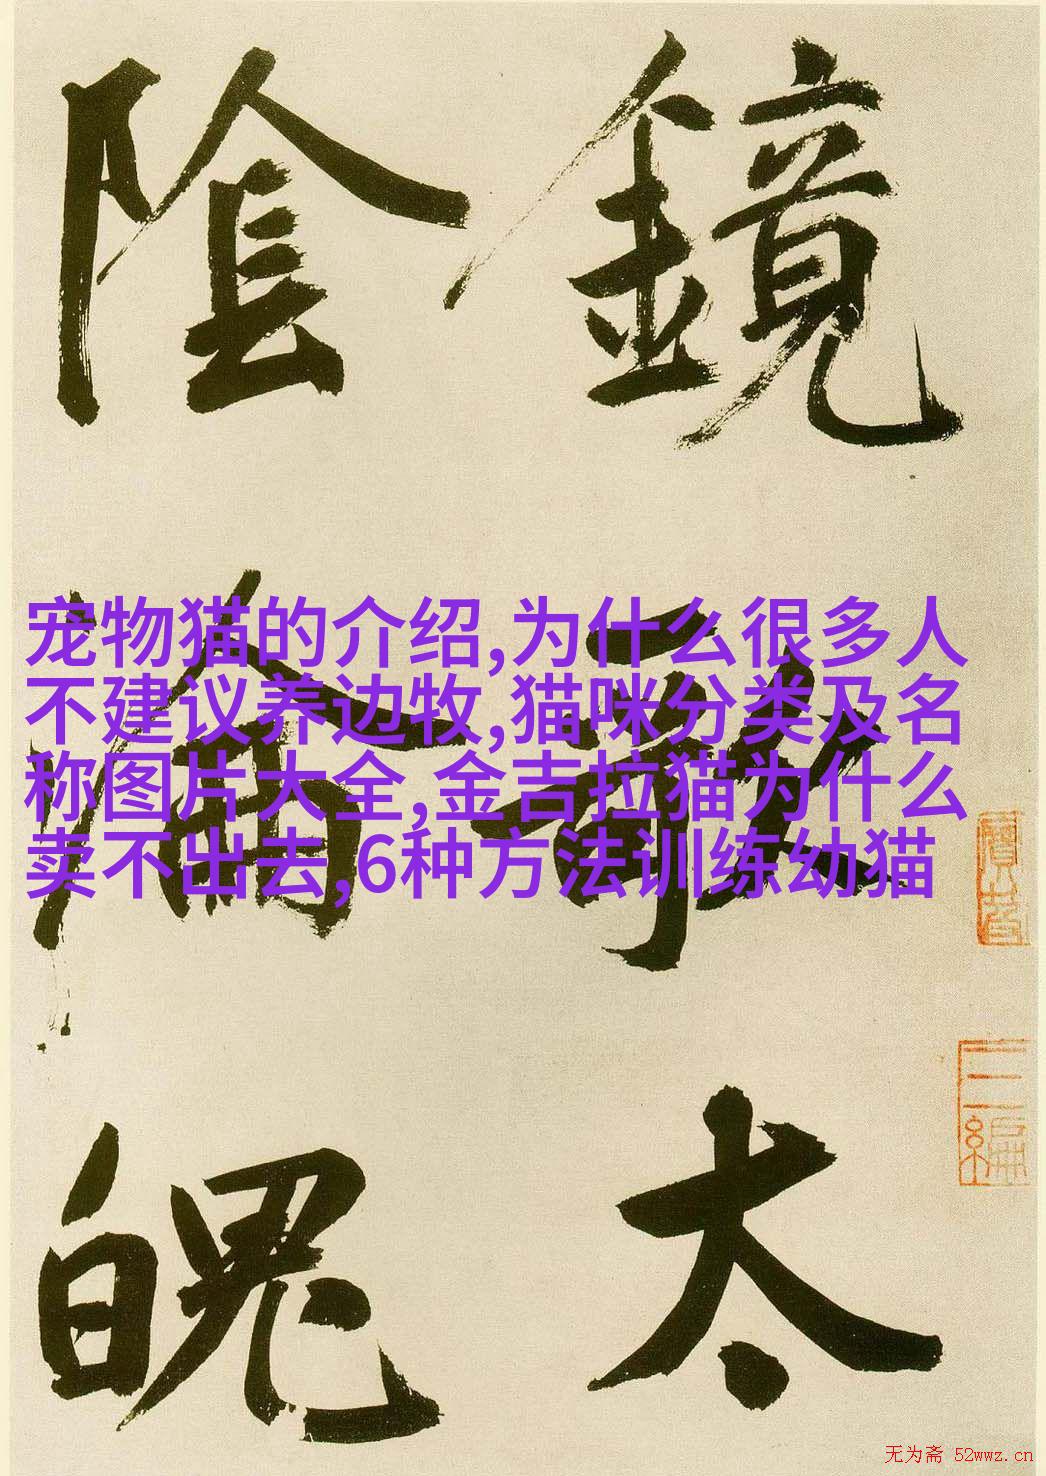 鏡
太
陰
淪
魄
宠物猫的介绍,为什么很多人
不建议养边牧,猫咪分类及名
称图片大全,金吉拉猫为什么
卖不出去,6种方法训练幼猫
无为斋 52wwz.cn